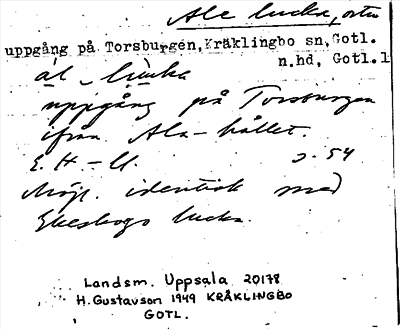 Ale lucka,
uppgång på Torsburgen, Kräklingbo sn, Gotl.
n.hd, Gotl.l
al - lucka
uppgång på Torsburgen
ifrån Ala-hållet.
E. H-n. s. 54
Möjl. identisk med
Ekeskogs lucka.
Landsm. Uppsala 20178
H. Gustavson 1949 KRÄKLINGBO
GOTL.